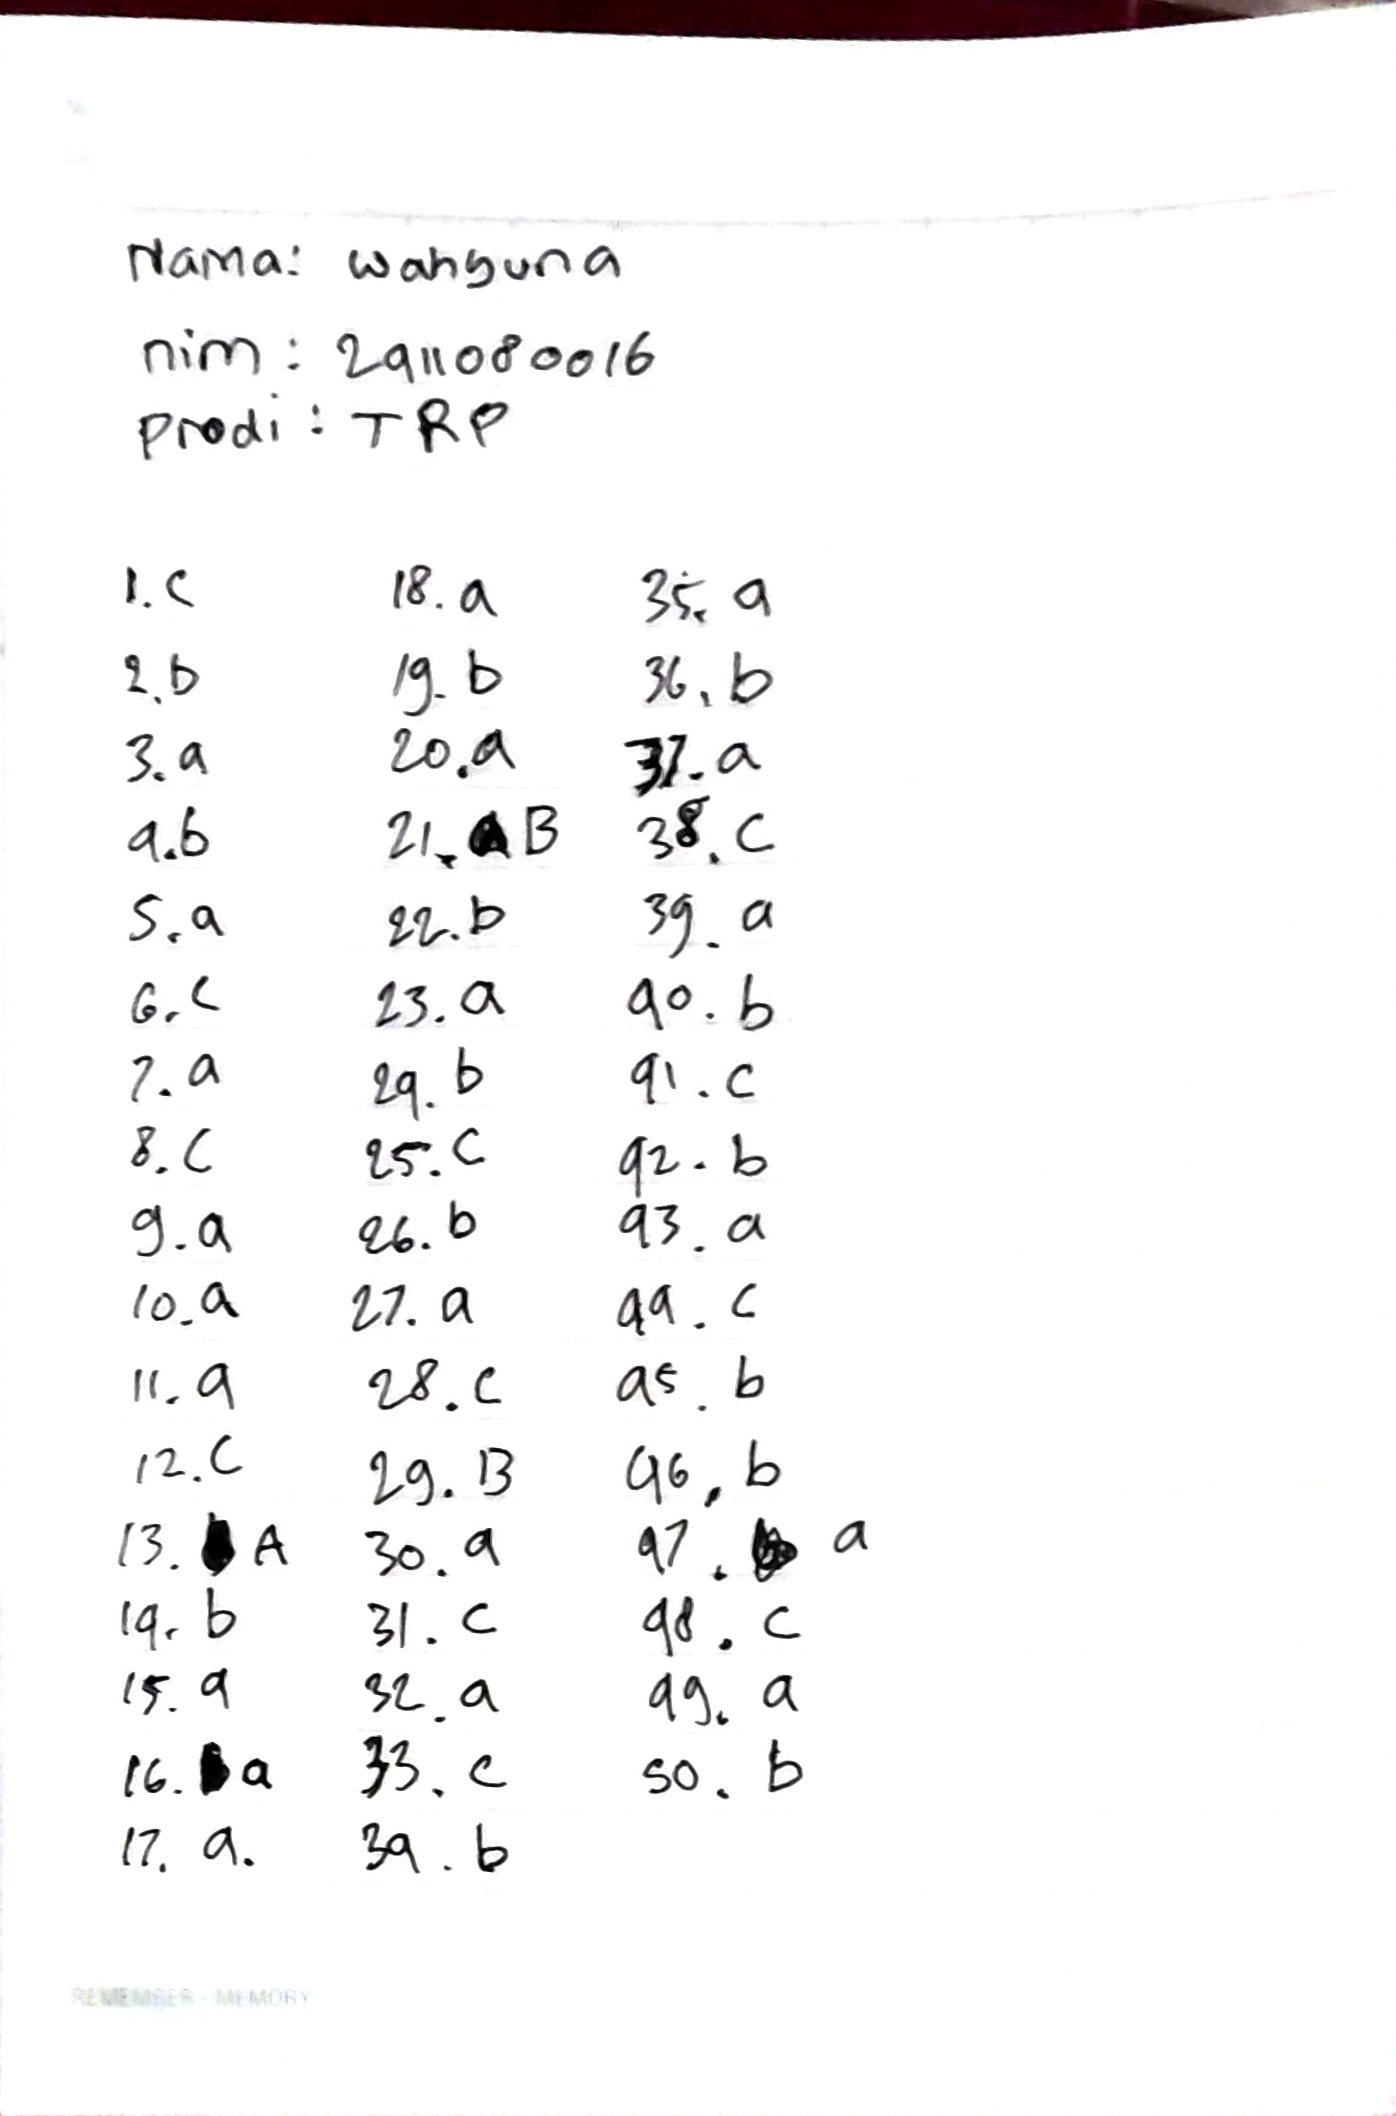 Nama: wahyuna
nim: 2411080016
prodi: TRP
1. c
2. b
3. a
4. b
5. a
6. c
7. a
8. c
9. a
10. a
11. a
12. c
13. A
14. b
15. a
16. a
17. a.
18. a
19. b
20. a
21. B
22. b
23. a
24. b
25. c
26. b
27. a
28. c
29. B
30. a
31. c
32. a
33. c
34. b
35. a
36. b
37. a
38. c
39. a
40. b
41. c
42. b
43. a
44. c
45. b
46. b
47. a
48. c
49. a
50. b
REMEMBER - MEMORY